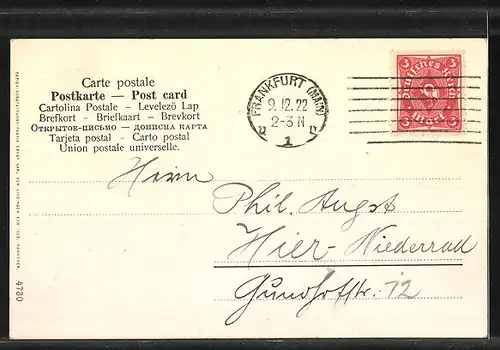 Carte postale
Postkarte — Post card
Cartolina Postale – Levelező Lap
Brefkort – Briefkaart – Brevkort
Открытое-письмо — дописна карта
Tarjeta postal – Carto postal
Union postale universelle.
FRANKFURT (MAIN)
9.12.22
2-3 N
1
Deutsches Reich
3 3
3 3
Herrn
Phil. Angst
Hier-Niederrad
Gundhofstr. 12
4730